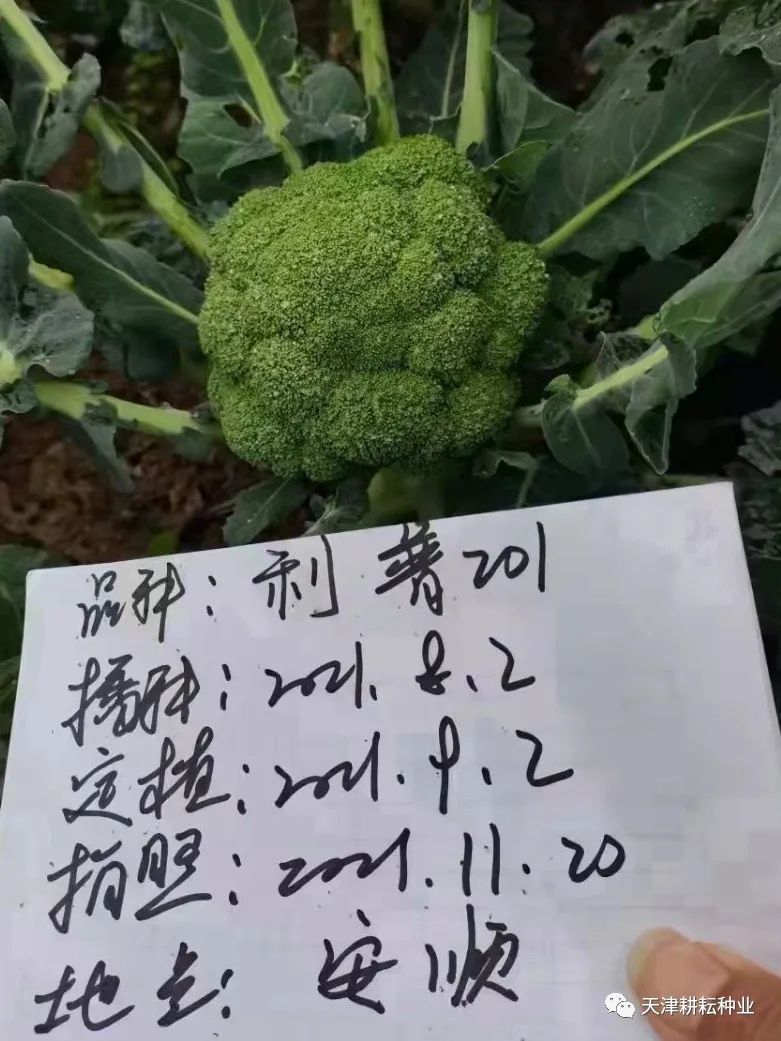 品种：利普201
播种：2021.8.2
定植：2021.9.2
拍照：2021.11.20
地点：安顺
天津耕耘种业